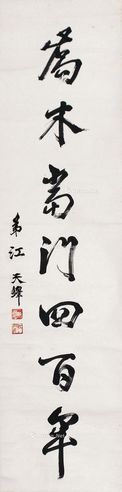 喬木當門四百年
弟江天鐸